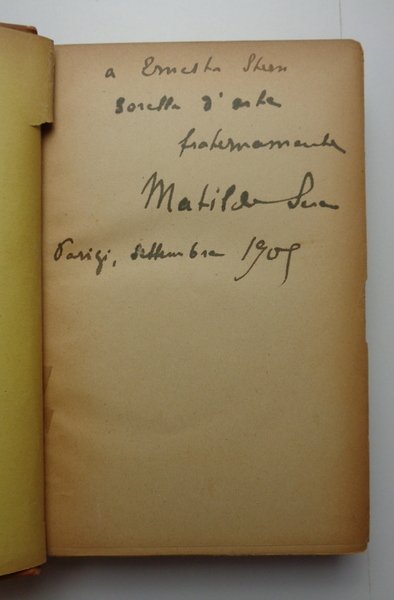 a Ernesta Stern
sorella d'arte
fraternamente
Matilde Serao
Parigi, settembre 1905